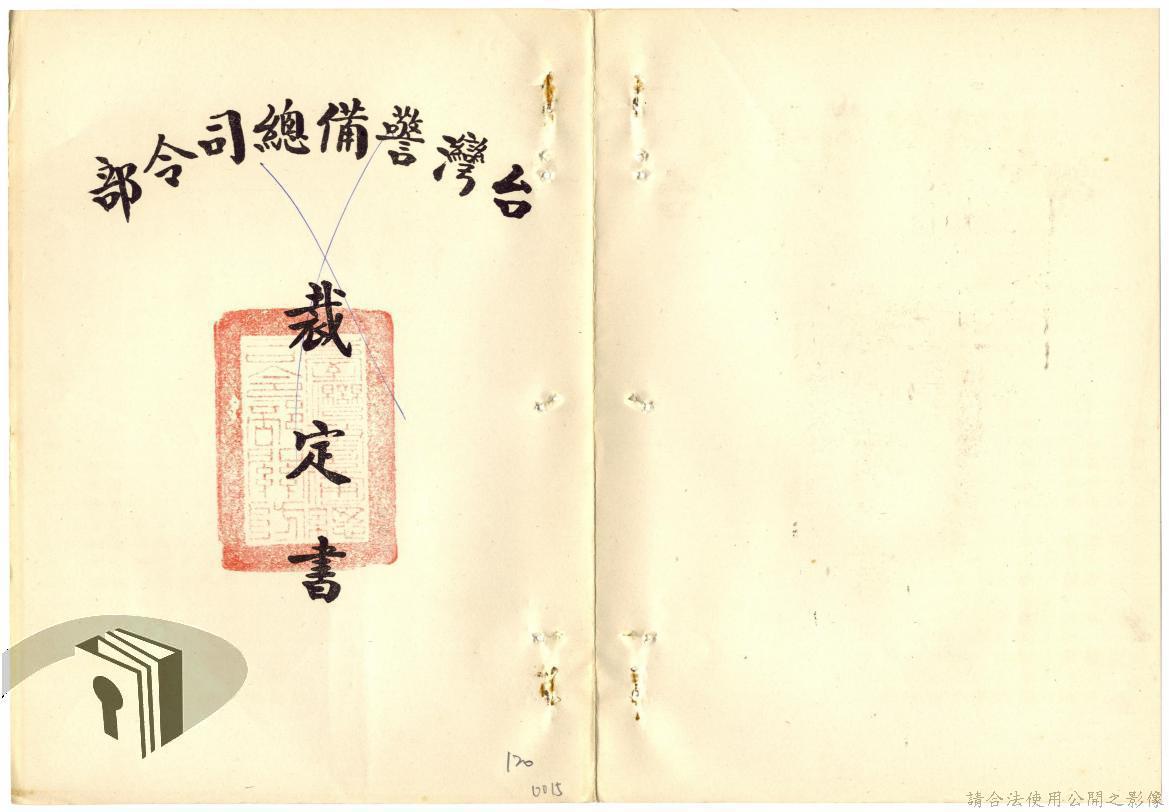 台灣警備總司令部
裁定書
120
0015
請合法使用公開之影像